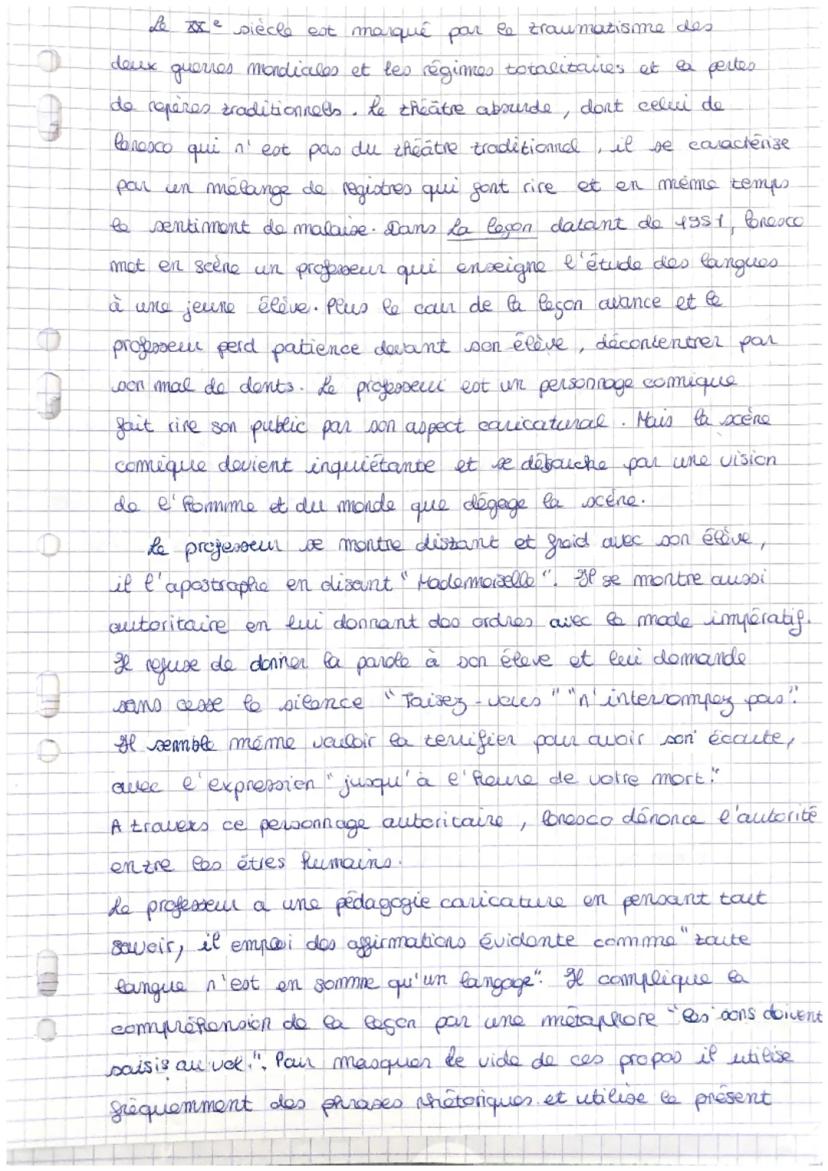 Le XXe siècle est marqué par le traumatisme des
deux guerres mondiales et les régimes totalitaires et la pertes
de repères traditionnels. Le théâtre absurde, dont celui de
Ionesco qui n'est pas du théâtre traditionnel, il se caractérise
par un mélange de registres qui font rire et en même temps
le sentiment de malaise. Dans La leçon datant de 1951, Ionesco
met en scène un professeur qui enseigne l'étude des langues
à une jeune élève. Plus le cour de la leçon avance et le
professeur perd patience devant son élève, déconcentrer par
son mal de dents. Le professeur est un personnage comique
fait rire son public par son aspect caricatural. Mais la scène
comique devient inquiétante et se débouche par une vision
de l'homme et du monde que dégage la scène.
Le professeur se montre distant et froid avec son élève,
il l'apostrophe en disant "Mademoiselle". Il se montre aussi
autoritaire en lui donnant des ordres avec le mode impératif.
Il refuse de donner la parole à son élève et lui demande
sans cesse le silence "Taisez-vous" "n'interrompez pas".
Il semble même vouloir la terrifier pour avoir son écoute,
avec l'expression "jusqu'à l'heure de votre mort."
A travers ce personnage autoritaire, Ionesco dénonce l'autorité
entre les êtres humains.
Le professeur a une pédagogie caricature en pensant tout
savoir, il emploi des affirmations évidente comme "toute
langue n'est en somme qu'un langage". Il complique la
compréhension de la leçon par une métaphore "les sons doivent
saisis au vol.". Pour masquer le vide de ces propos il utilise
fréquemment des phrases rhétoriques et utilise le présent